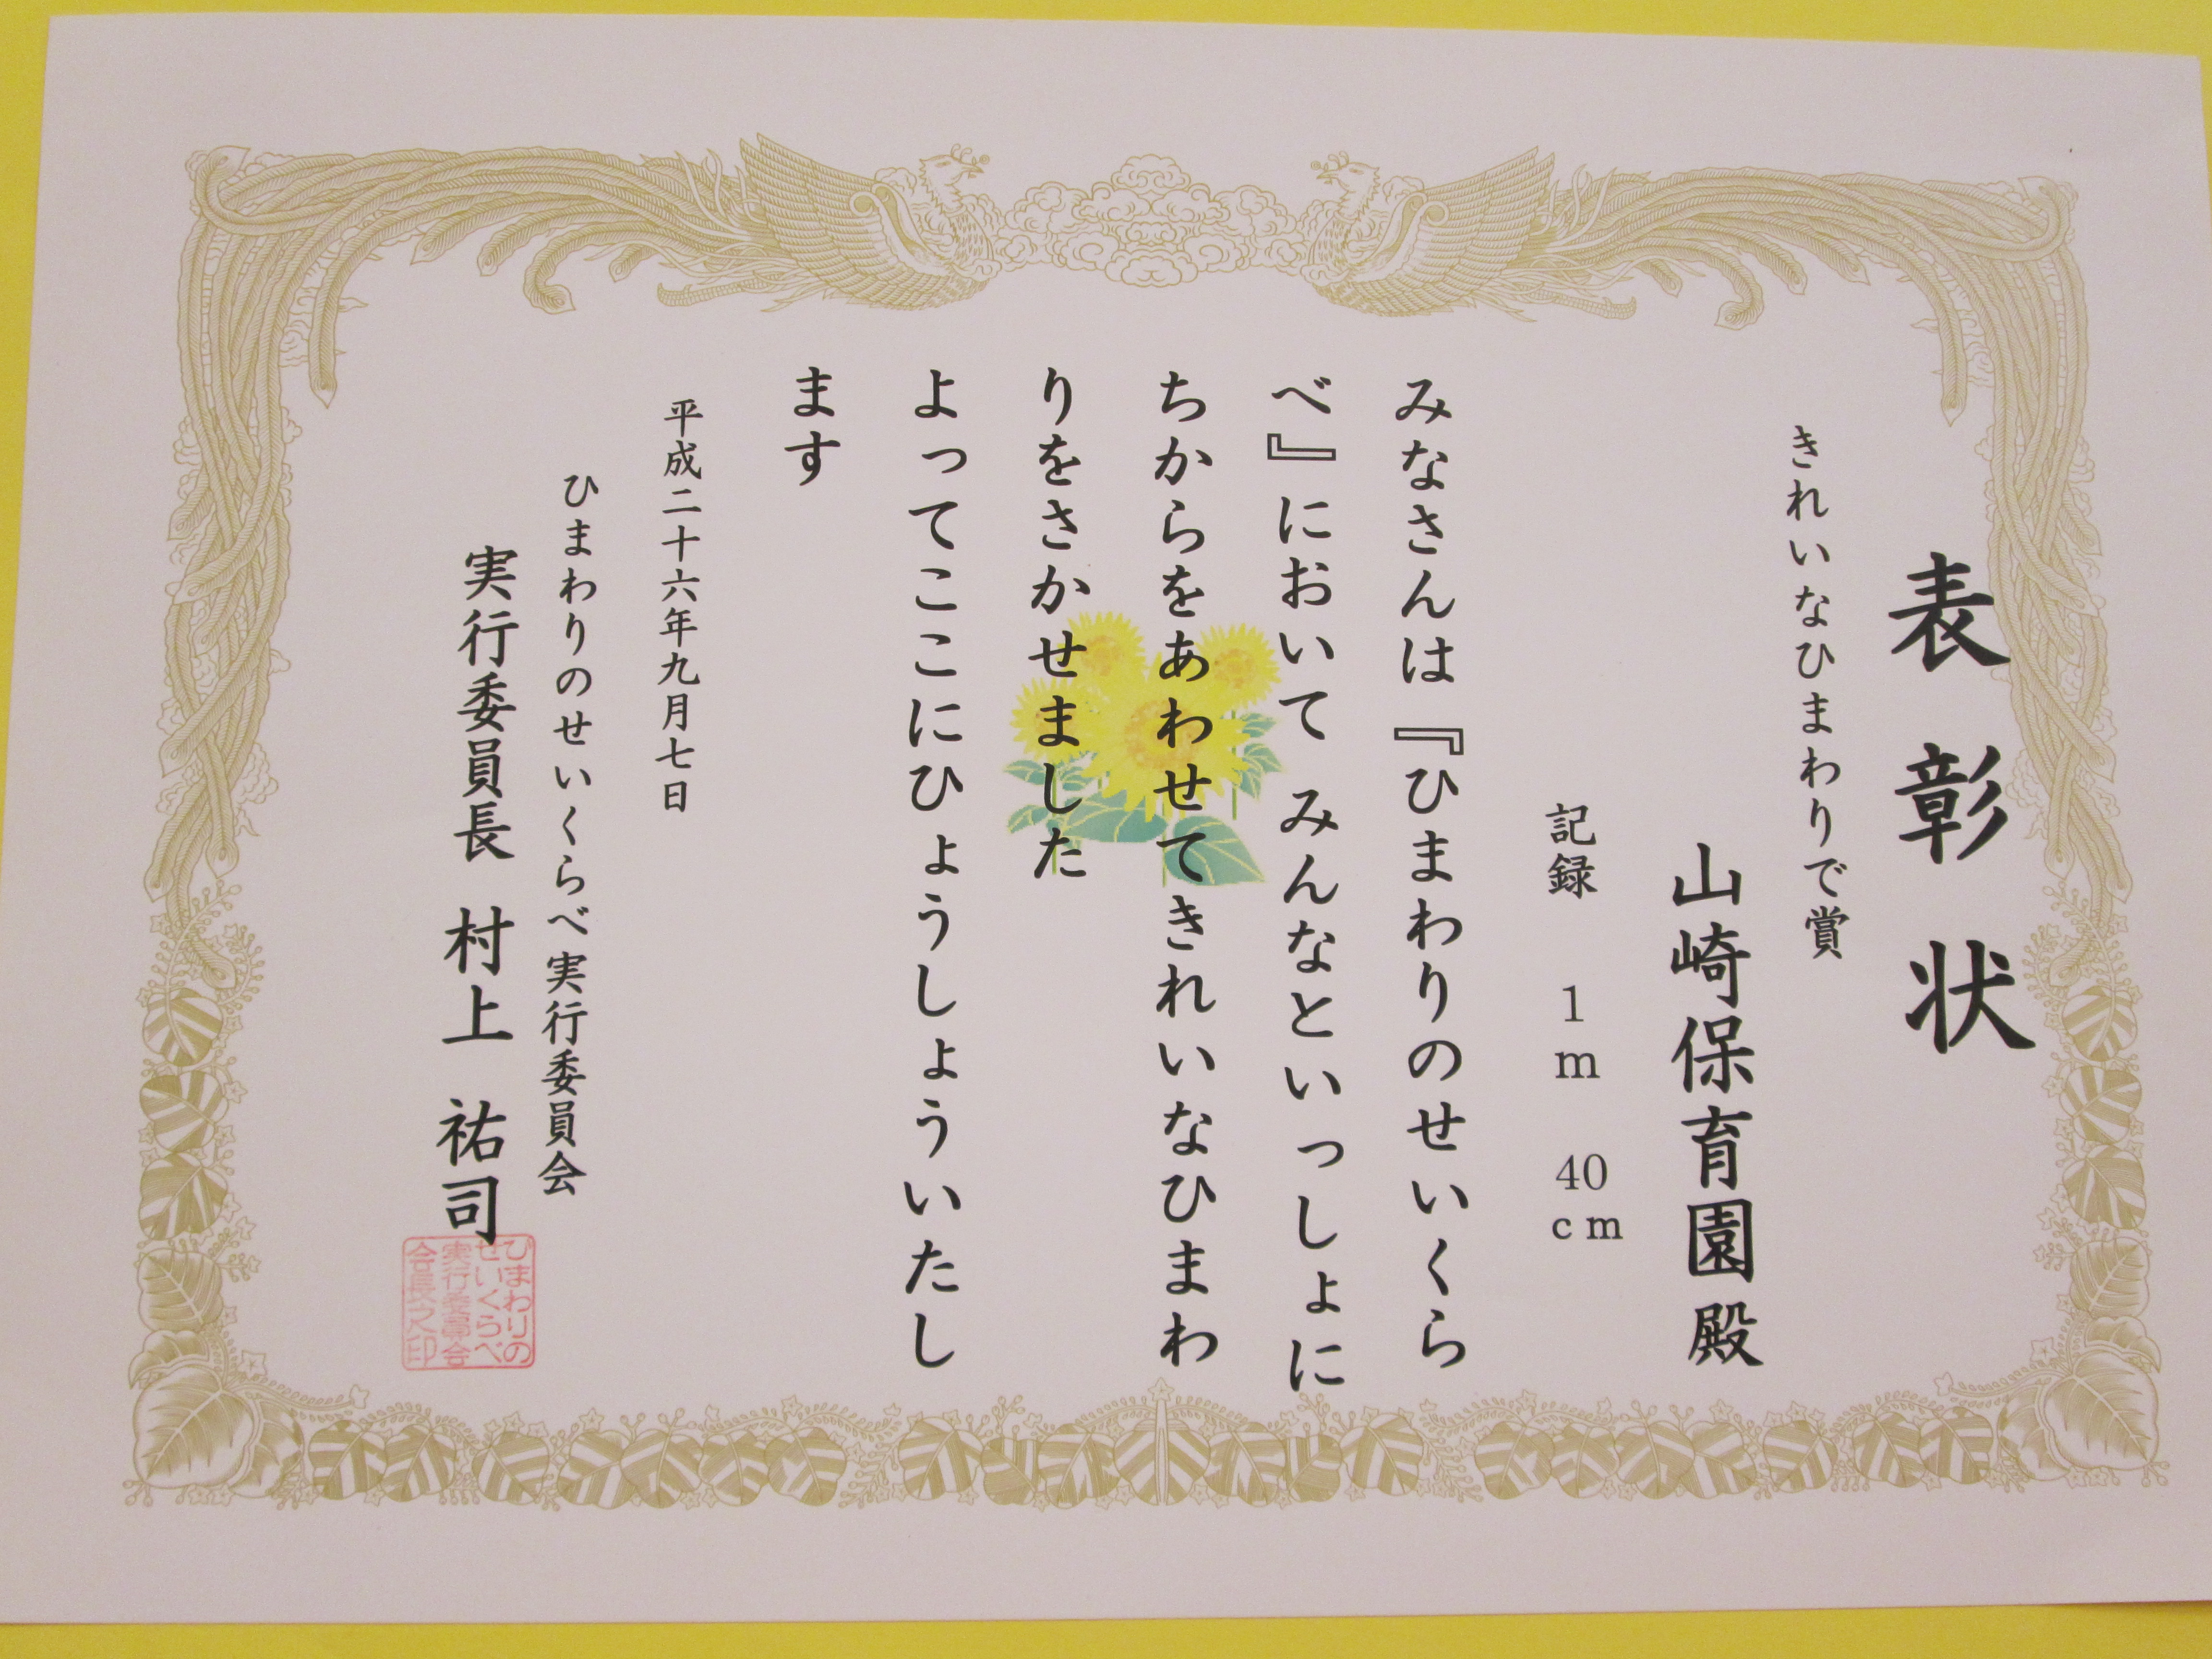 表彰状
きれいなひまわりで賞
山崎保育園殿
記録 1m 40cm
みなさんは『ひまわりのせいくら
べ』において みんなといっしょに
ちからをあわせてきれいなひまわ
りをさかせました
よってここにひょうしょういたし
ます
平成二十六年九月七日
ひまわりのせいくらべ実行委員会
実行委員長 村上 祐司
ひまわりの
せいくらべ
実行委員会
会長之印